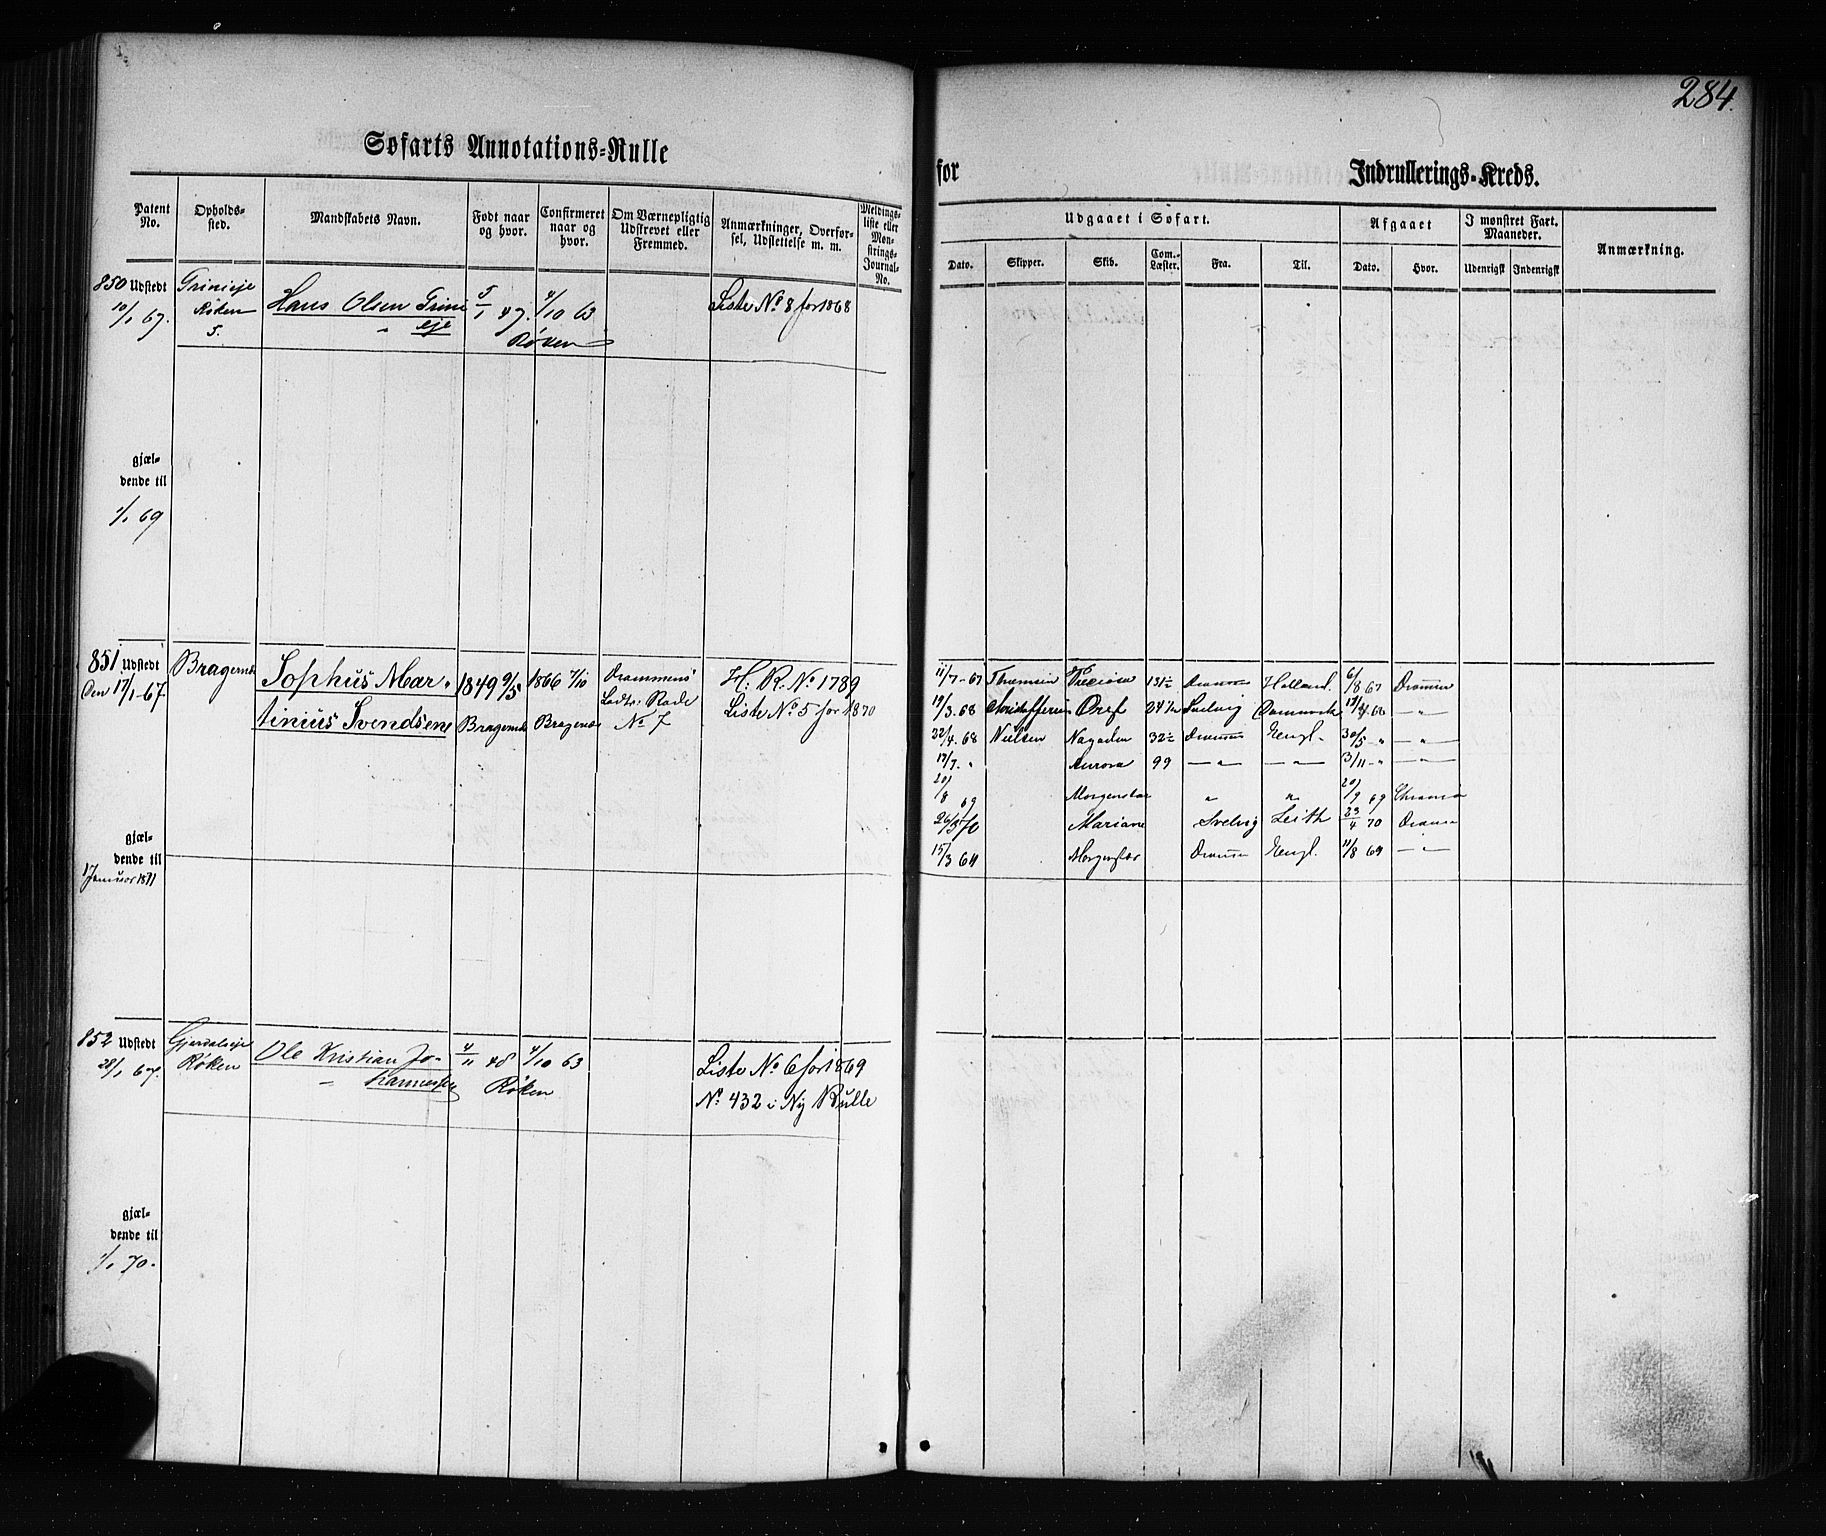 284.
Søfarts Annotations-Rulle
for Indrullerings-Kreds.
Patent No.
Opholdssted.
Mandskabets Navn.
Født naar og hvor.
Confirmeret naar og hvor.
Om Værnepligtig Udskrevet eller Fremmed.
Anmærkninger, Overførsel, Udslettelse m. m.
Meldingsliste eller Mønstrings-Journal-No.
Udgaaet i Søfart.
Dato. Skipper. Skib. Com.-Læster. Fra. Til.
Afgaaet
Dato. Hvor.
I mønstret Fart. Maaneder.
Udenrigsk Indenrigsk
Anmærkning.
850 Udstedt
10/1 67.
Grinieje
Røken
5.
Hans Olsen Grini
" eje
5/1 47.
4/10 63
Røken
Liste No 8 for 1868
gjæl-
dende til
1/1 69
851 Udstedt
Den 17/1-67
Bragernæs
Sophus Mar-
tinius Svendsen
1849 9/5
Bragernæs
1866 7/10
Bragernæs
Drammens
Ladtr: Rode
No 7
H: R. No 1789
Liste No 5 for 1870
11/7-67 Preciosa 131½ Holland. 6/8 67 Drammen
19/3-68 Christoffersen Svelvig Danmark —"—
22/4-68 Nielsen 32½ Engl. 30/5-" —"—
17/7-" Aurora 99 —"— —"— 3/11-" —"—
20/8 69 Morgenstar " " 20/9 69
26/3 70 Mariane Svelvig Leith 23/4 70
15/3 69 Engl. 11/8 69 —"—
gjæl-
dende til
1 Januar 1871
852 Udstedt
28/1 67.
Røken
Ole Kristian Jo-
" hannessen
4/11 48
4/10 63
Røken
Liste No 6 for 1869
No 432 i Ny Rulle
gjæl-
dende til
1/1 70.